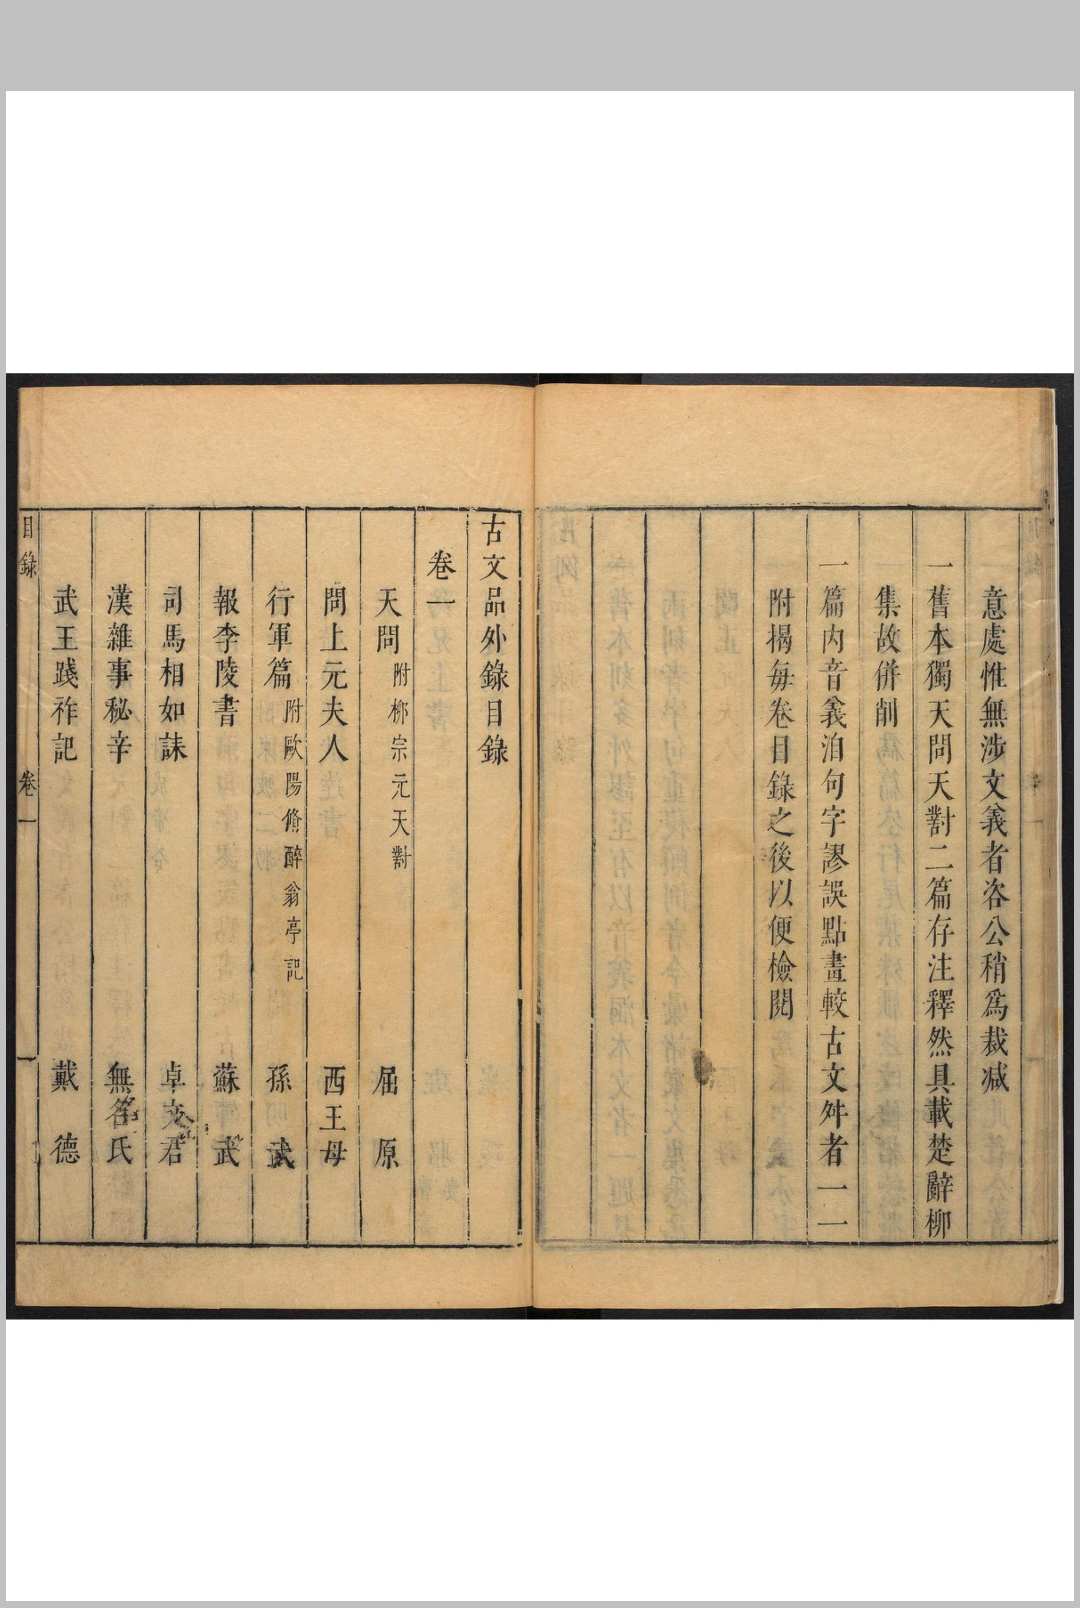 意處惟無涉文義者咨公稍爲裁减
一舊本獨天問天對二篇存注釋然具載楚辭柳
集故併削
一篇內音義洎句字謬誤點畫較古文舛者一一
附揭每卷目錄之後以便檢閱
古文品外錄目錄
卷一
天問 附柳宗元天對 屈原
問上元夫人 西王母
行軍篇 附歐陽脩醉翁亭記 孫武
報李陵書 蘇武
司馬相如誄 卓文君
漢雜事秘辛 無名氏
武王踐祚記 戴德
目錄 卷一 一